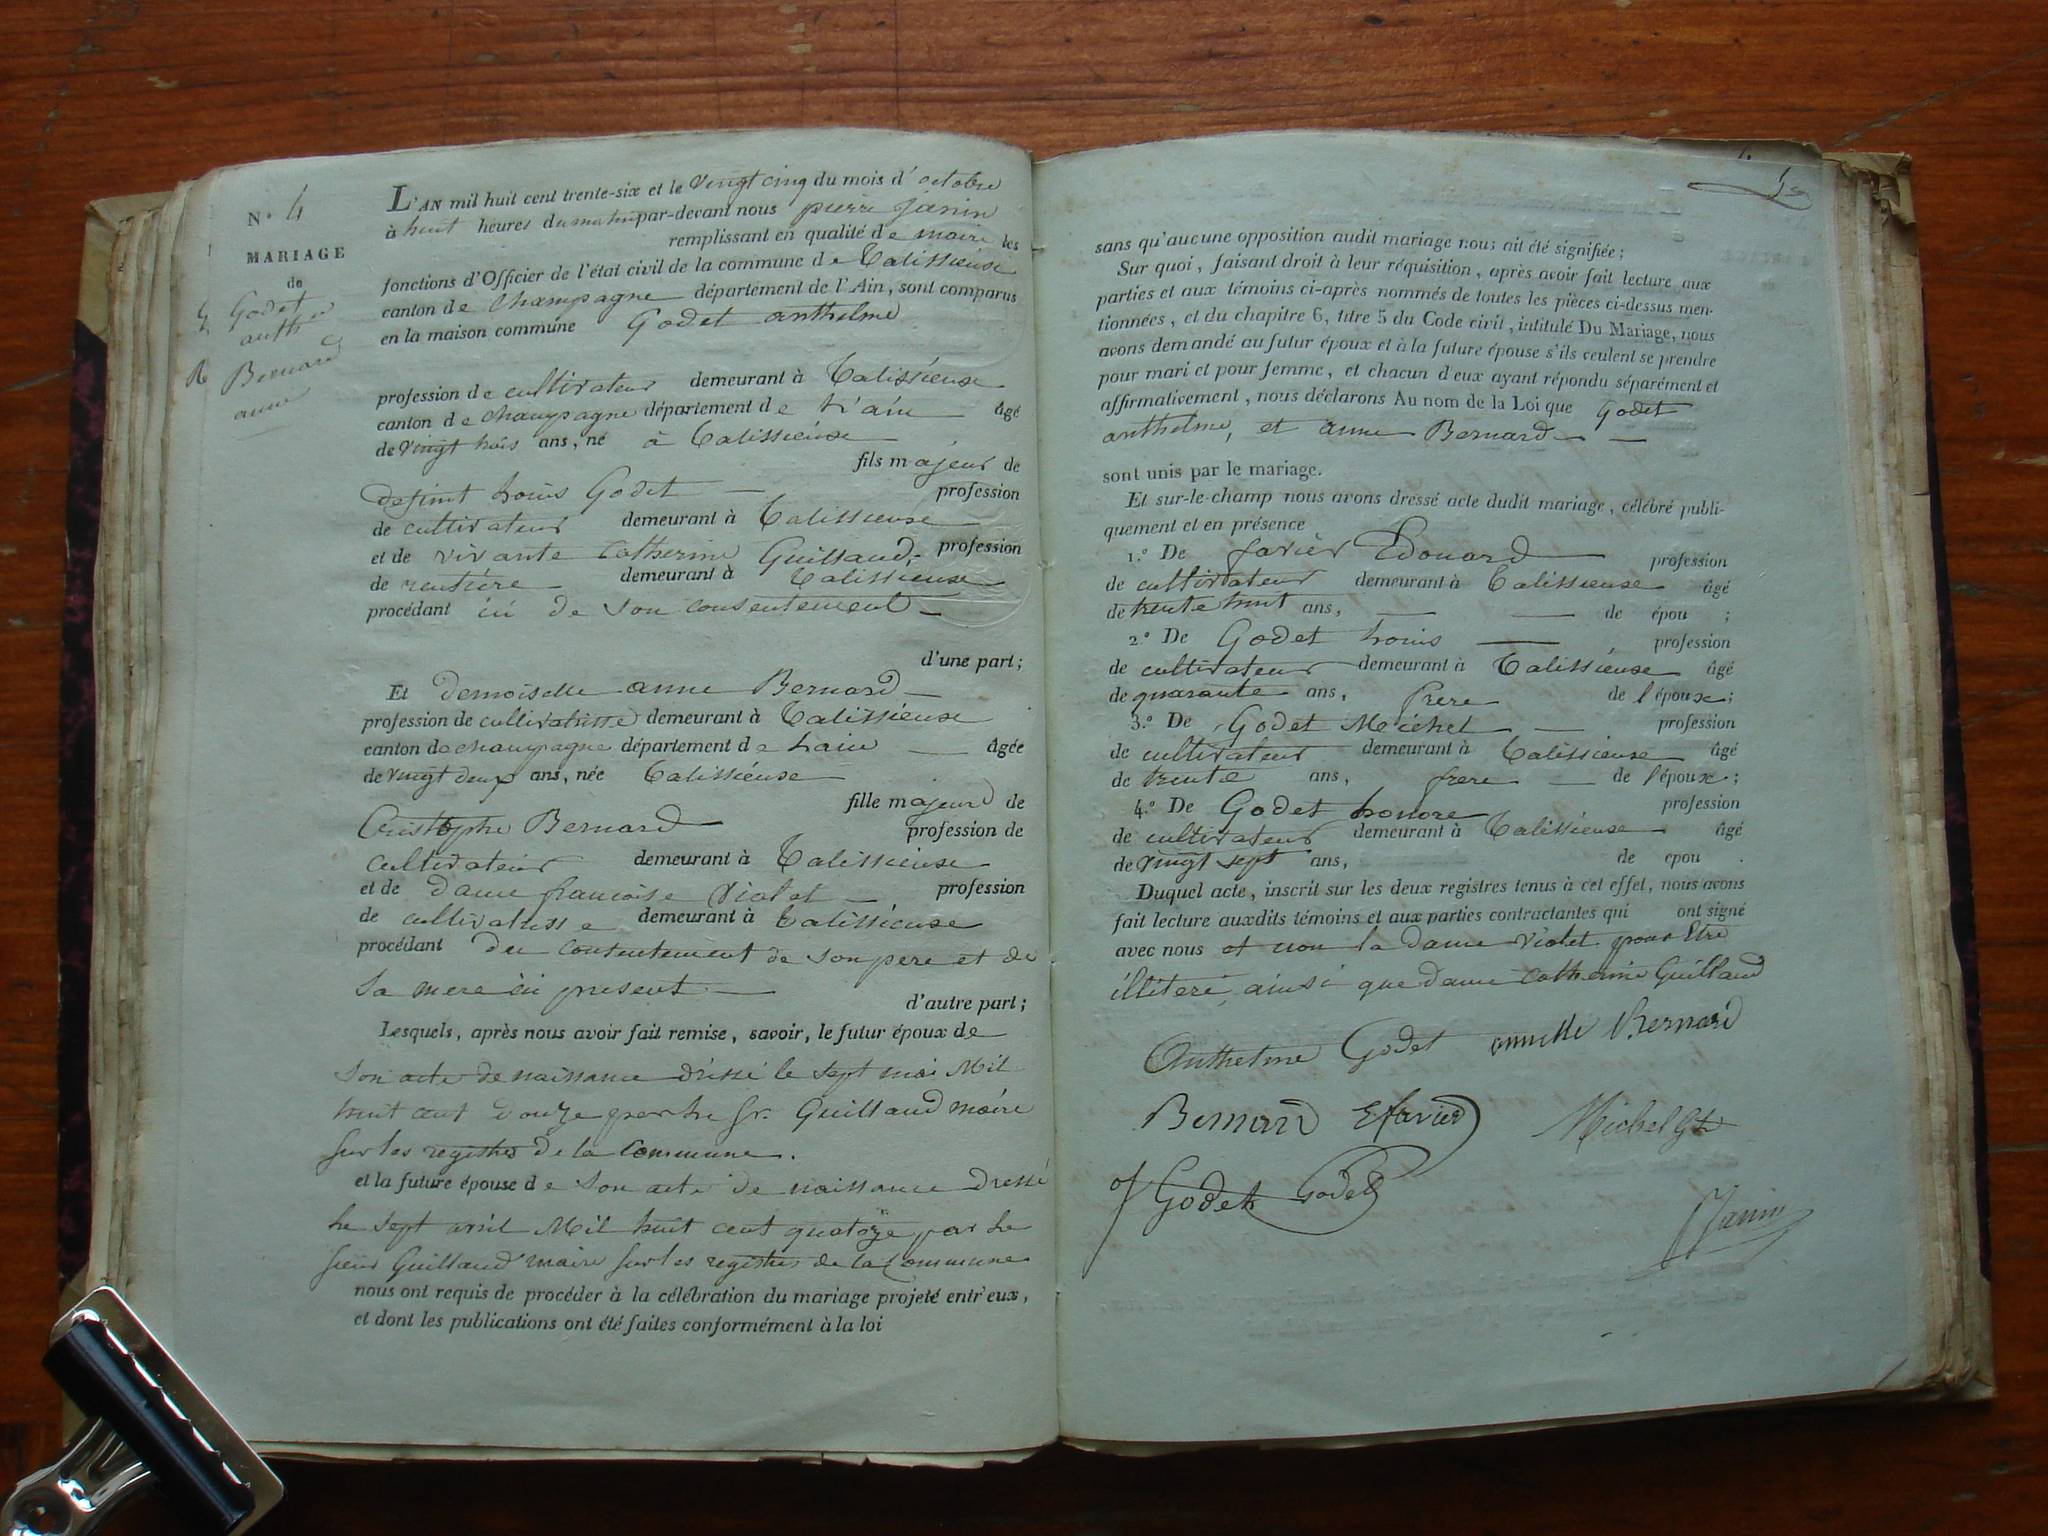 N° 4
MARIAGE
de
Godet
anth
Bernard
anne
L'AN mil huit cent trente-six et le vingt cinq du mois d'octobre
à huit heures du matin par-devant nous pierre Janin
remplissant en qualité de maire les
fonctions d'Officier de l'état civil de la commune de Talissieuse
canton de champagne département de l'Ain, sont comparus
en la maison commune Godet anthelme
profession de cultivateur demeurant à Talissieuse
canton de champagne département de L'ain âgé
de vingt trois ans, né à Talissieuse
fils majeur de
defunt Louis Godet profession
de cultivateur demeurant à Talissieuse
et de vivante Catherine Guillaud, profession
de rentière demeurant à Talissieuse
procédant ici de son consentement
d'une part;
Et demoiselle anne Bernard
profession de cultivatrisse demeurant à Talissieuse
canton de champagne département de Lain âgée
de vingt deux ans, née Talissieuse
fille majeure de
Cristophe Bernard profession de
cultivateur demeurant à Talissieuse
et de dame francoise Violet profession
de cultivatrisse demeurant à Talissieuse
procédant du consentement de son pere et de
sa mere ici present
d'autre part;
Lesquels, après nous avoir fait remise, savoir, le futur époux de
son acte de naissance dréssé le sept mai Mil
huit cent douze par le Sr. Guillaud maire
sur les registres de la commune.
et la future épouse de son acte de naissance dressé
le sept avril Mil huit cent quatoze par le
sieur Guillaud maire sur les registres de la Commune
nous ont requis de procéder à la célébration du mariage projeté entr'eux,
et dont les publications ont été faites conformément à la loi
sans qu'aucune opposition audit mariage nous ait été signifiée;
Sur quoi, faisant droit à leur réquisition, après avoir fait lecture aux
parties et aux témoins ci-après nommés de toutes les pièces ci-dessus men-
tionnées, et du chapitre 6, titre 5 du Code civil, intitulé Du Mariage, nous
avons demandé au futur époux et à la future épouse s'ils veulent se prendre
pour mari et pour femme, et chacun d'eux ayant répondu séparément et
affirmativement, nous déclarons Au nom de la Loi que Godet
anthelme, et anne Bernard
sont unis par le mariage.
Et sur-le-champ nous avons dressé acte dudit mariage, célébré publi-
quement et en présence
1.° De favier Edouard profession
de cultivateur demeurant à Talissieuse âgé
de trente huit ans, de épou ;
2.° De Godet Louis profession
de cultivateur demeurant à Talissieuse âgé
de quarante ans, frere de l'époux;
3.° De Godet Michel profession
de cultivateur demeurant à Talissieuse âgé
de trente ans, frere de l'époux;
4.° De Godet honore profession
de cultivateur demeurant à Talissieuse âgé
de vingt sept ans, de epou .
Duquel acte, inscrit sur les deux registres tenus à cet effet, nous avons
fait lecture auxdits témoins et aux parties contractantes qui ont signé
avec nous et non la dame Violet pour Etre
illiteré, ainsi que dame Catherine Guillaud
Anthelme Godet annette Bernard
Bernard E favier Michel Gt
Godet Godet
Janin